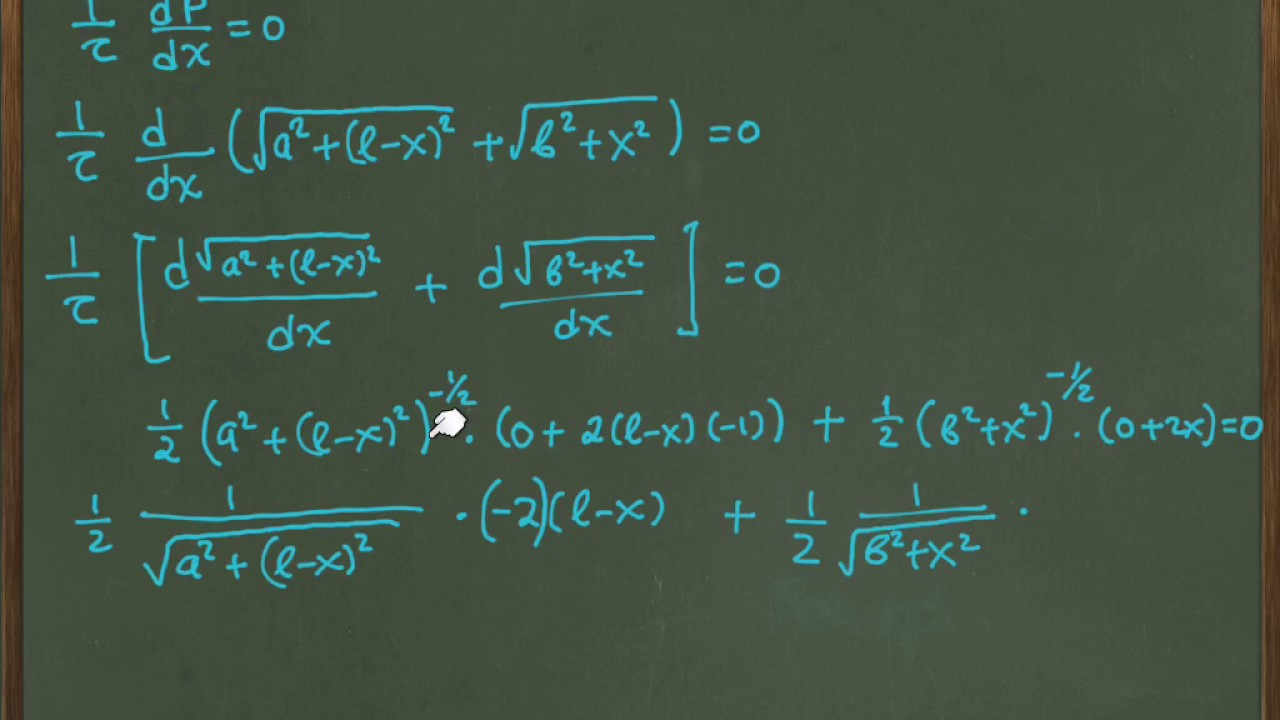 1/τ dP/dx = 0
1/τ d/dx (√(a²+(l-x)²) + √(b²+x²)) = 0
1/τ [d√(a²+(l-x)²)/dx + d√(b²+x²)/dx] = 0
1/2 (a²+(l-x)²)^(-1/2) · (0+2(l-x)(-1)) + 1/2 (b²+x²)^(-1/2) · (0+2x)=0
1/2 1/√(a²+(l-x)²) · (-2)(l-x) + 1/2 1/√(b²+x²) ·